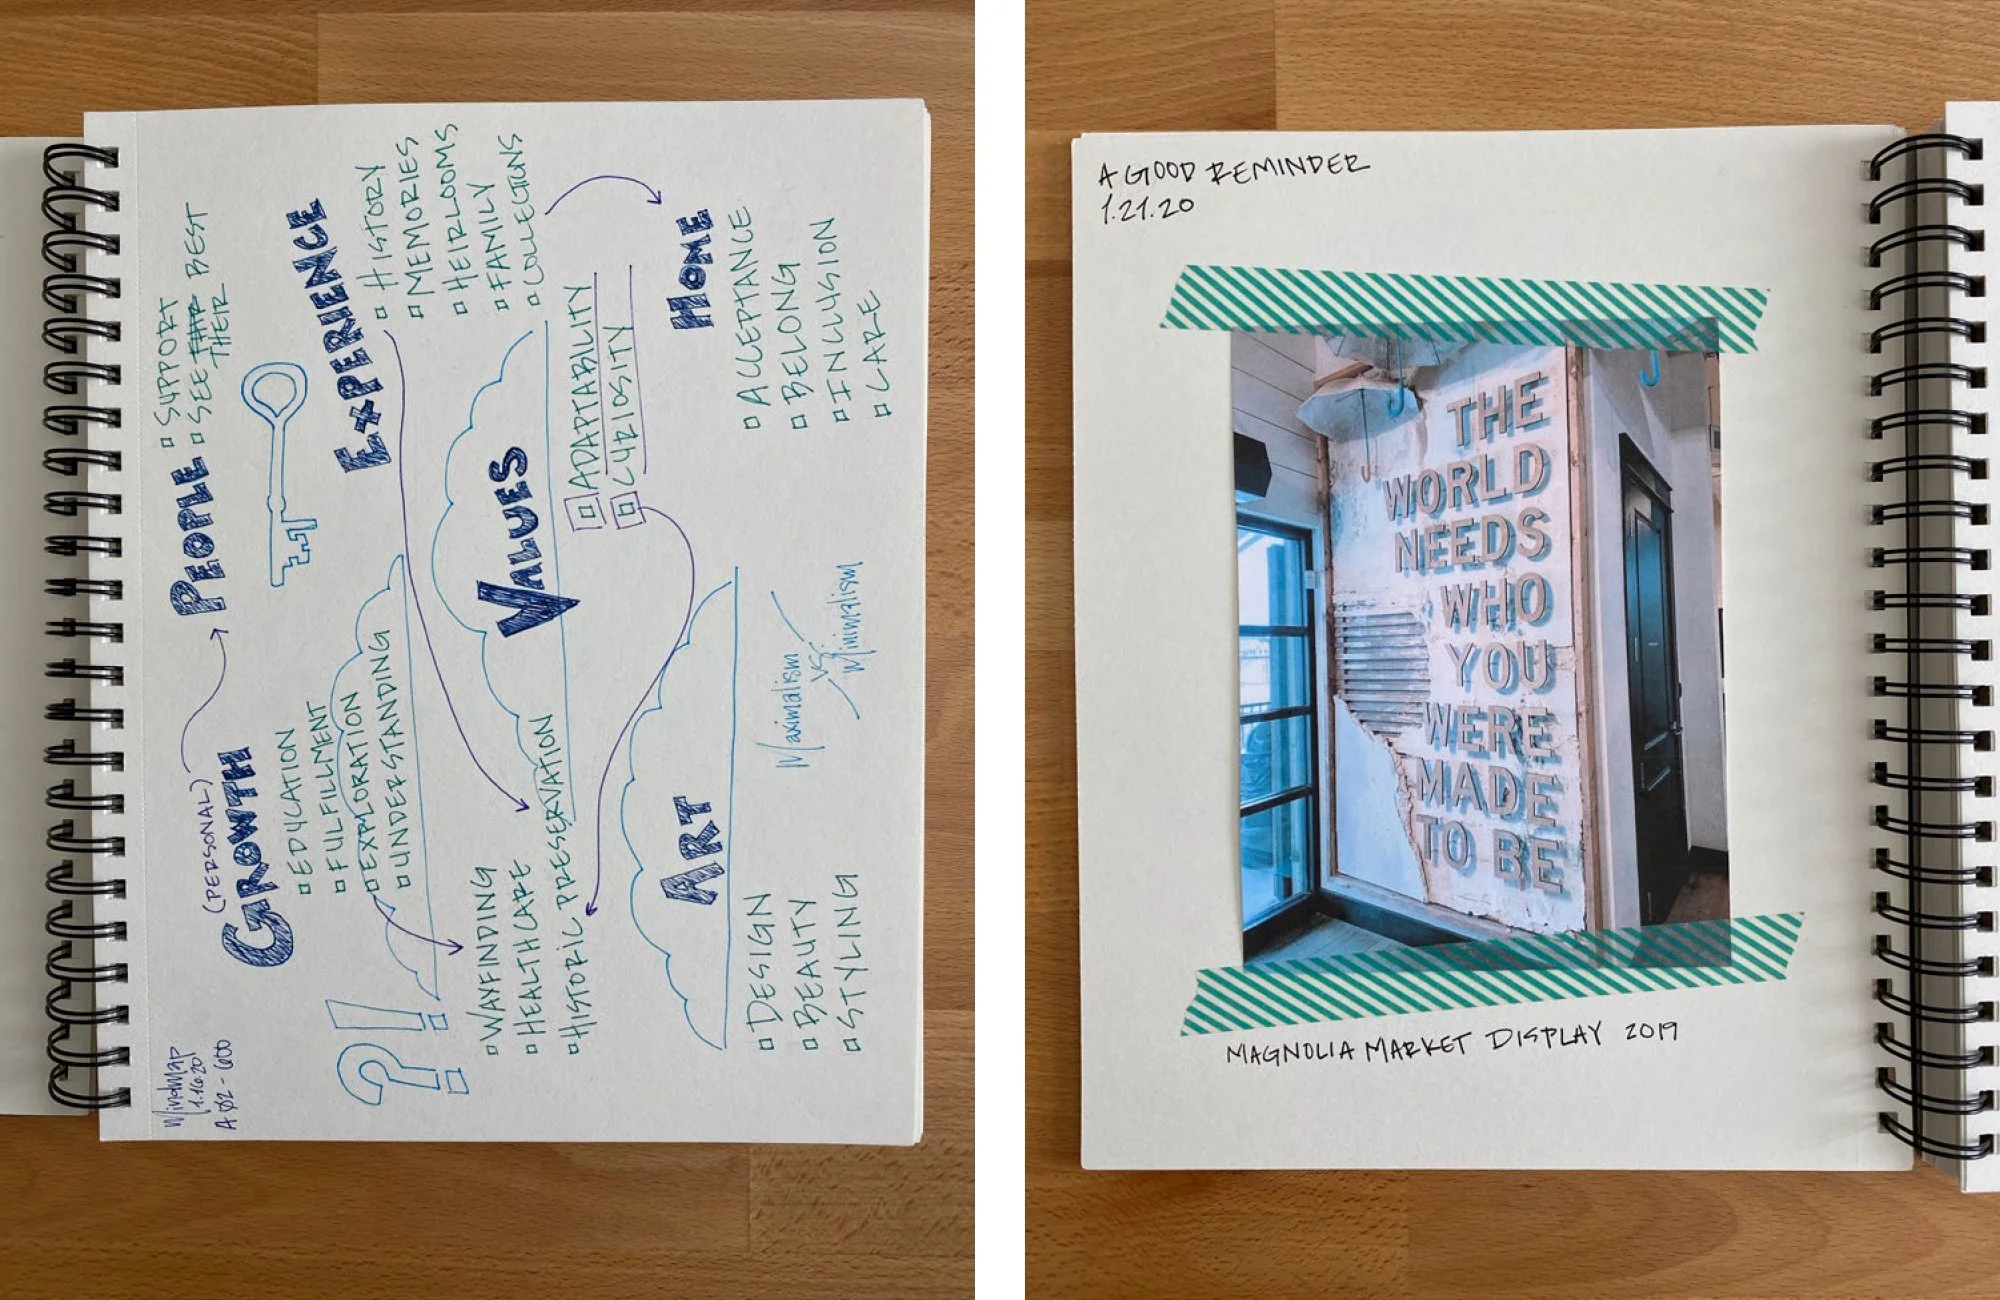 Mindmap
1.16.20
A02-600
(PERSONAL)
GROWTH
EDUCATION
FULFILLMENT
EXPLORATION
UNDERSTANDING
PEOPLE
SUPPORT
SEE THIR BEST
THEIR
?!
WAYFINDING
HEALTHCARE
HISTORIC PRESERVATION
VALUES
ADAPTABILITY
CURIOSITY
EXPERIENCE
HISTORY
MEMORIES
HEIRLOOMS
FAMILY
COLLECTIONS
ART
DESIGN
BEAUTY
STYLING
Maximalism
vs.
Minimalism
HOME
ACCEPTANCE
BELONG
INCLUSION
CARE
A GOOD REMINDER
1.21.20
THE
WORLD
NEEDS
WHO
YOU
WERE
MADE
TO BE
MAGNOLIA MARKET DISPLAY 2019